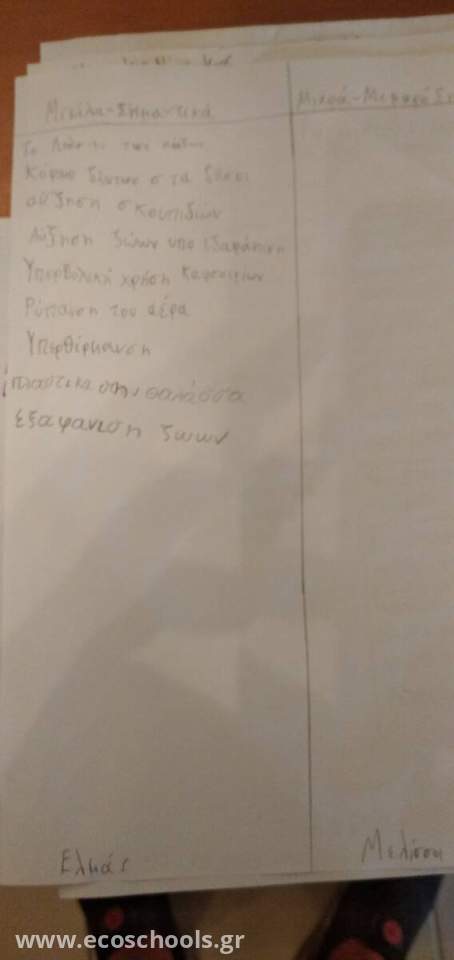 Μεγάλα-Σημαντικά
Μικρά-Μεμαρά
Το των
Κόψιμο δέντρων στα δάση
αύξηση σκουπιδιών
Αύξηση ζώων υπο εξαφάνιση
Υπερβολική χρήση καυσαερίων
Ρύπανση του αέρα
Υπερθέρμανση
πλαστικα στην θαλάσσα
εξαφανιση ζωων
Ελμάς
Μελίσση
www.ecoschools.gr